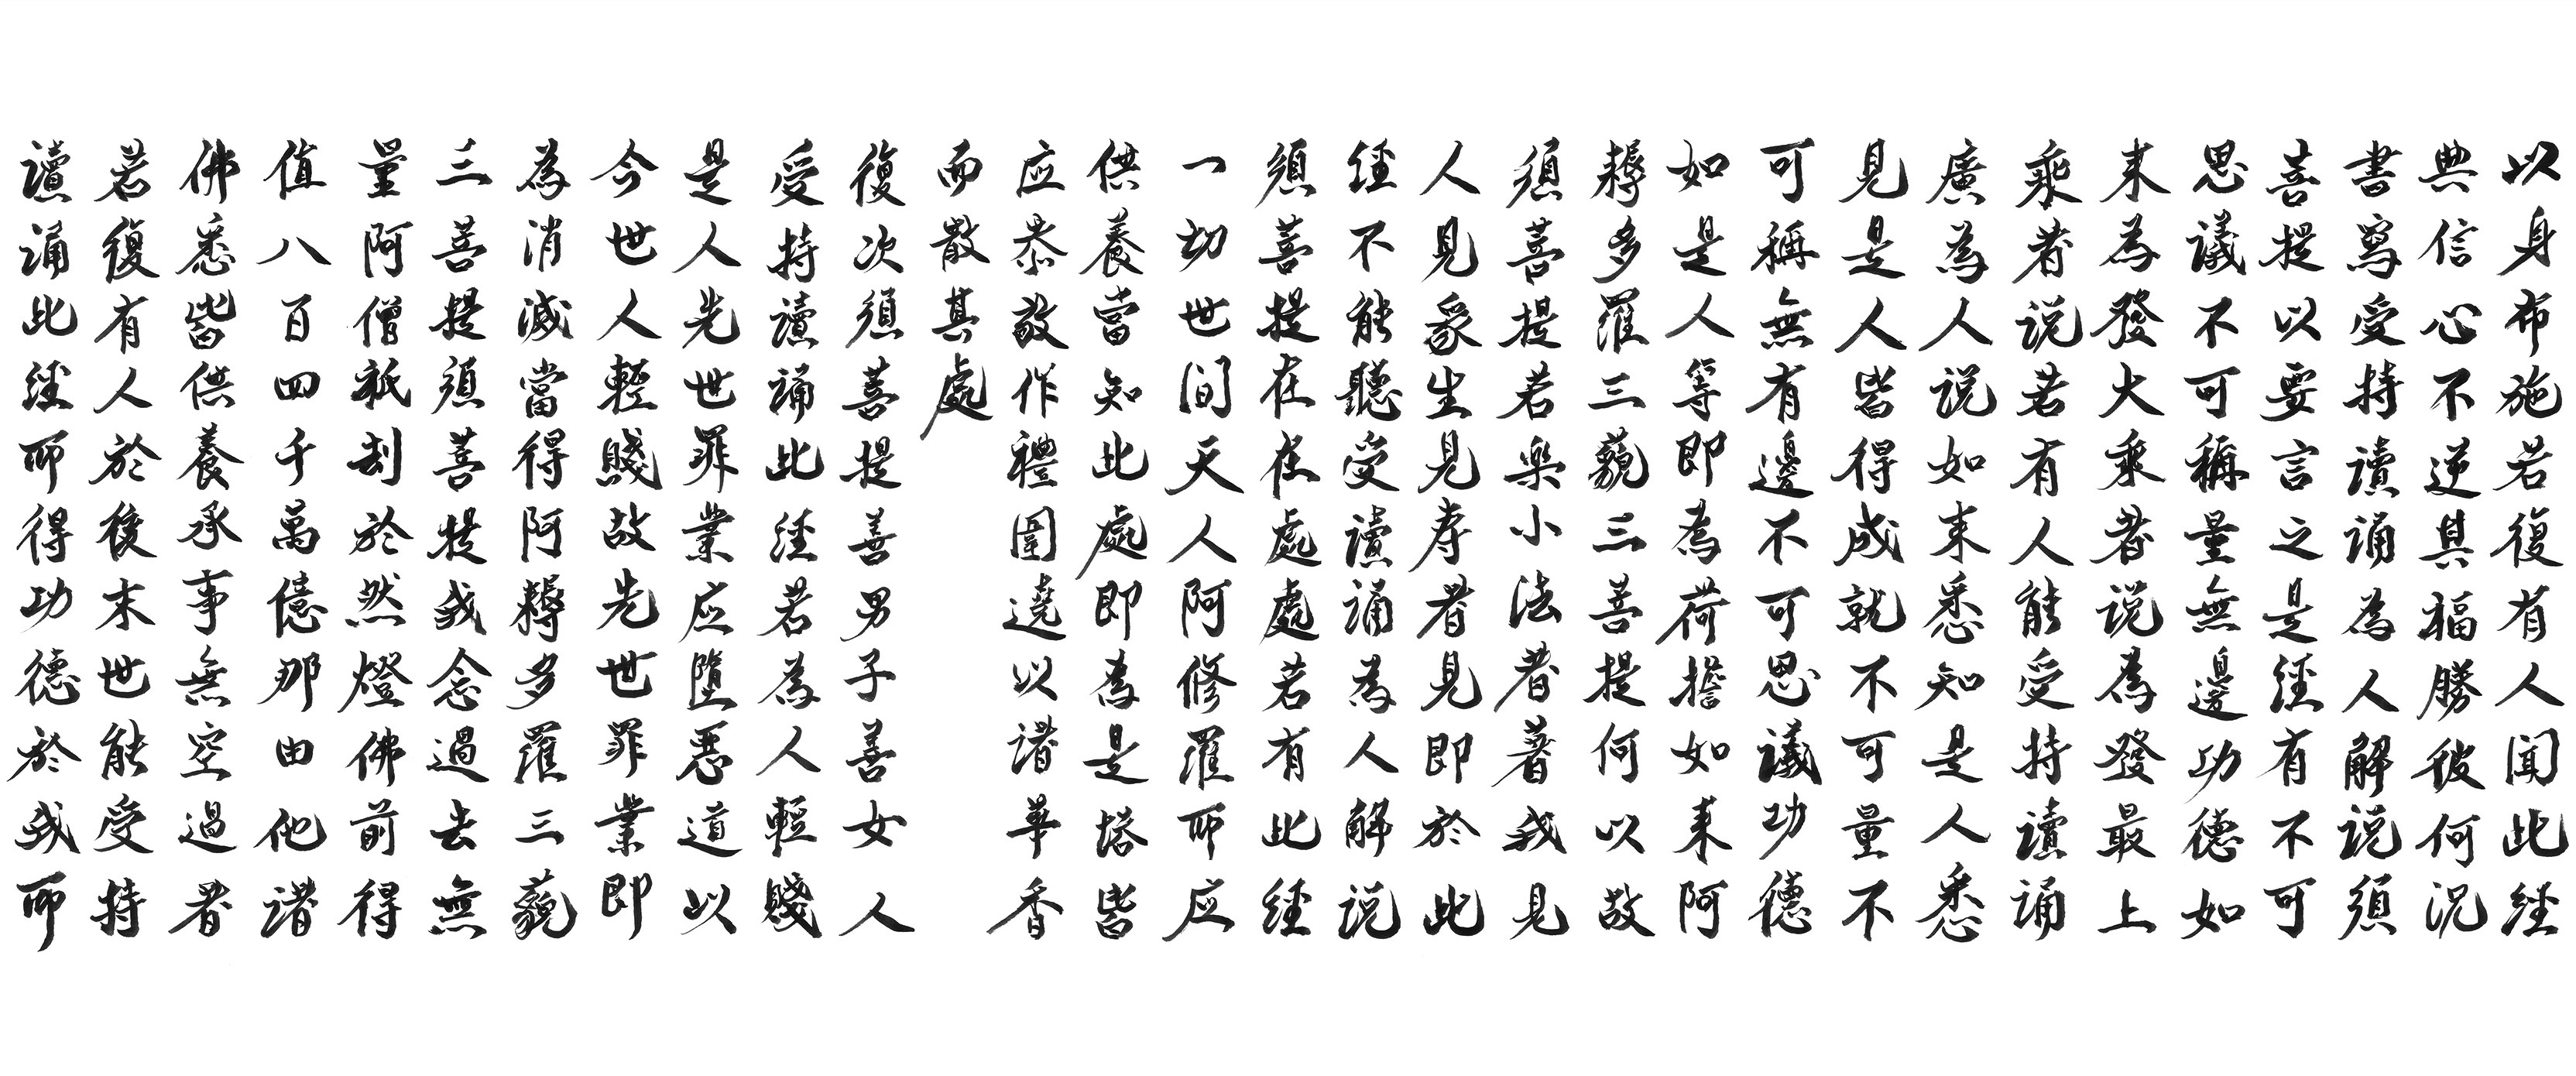 以身布施若復有人聞此經
典信心不逆其福勝彼何況
書寫受持讀誦為人解說須
菩提以要言之是經有不可
思議不可稱量無邊功德如
来為發大乘者說為發最上
乘者說若有人能受持讀誦
廣為人說如来悉知是人悉
見是人皆得成就不可量不
可稱無有邊不可思議功德
如是人等即為荷擔如来阿
耨多羅三藐三菩提何以故
須菩提若楽小法者著我見
人見衆生見寿者見即於此
經不能聽受讀誦為人解說
須菩提在在處處若有此經
一切世間天人阿修羅所应
供養當知此處即為是塔皆
应恭敬作禮圍遶以諸華香
而散其處
復次須菩提善男子善女人
受持讀誦此經若為人輕賤
是人先世罪業应墮惡道以
今世人輕賤故先世罪業即
為消滅當得阿耨多羅三藐
三菩提須菩提我念過去無
量阿僧祇劫於然燈佛前得
值八百四千萬億那由他諸
佛悉皆供養承事無空過者
若復有人於後末世能受持
讀誦此經所得功德於我所